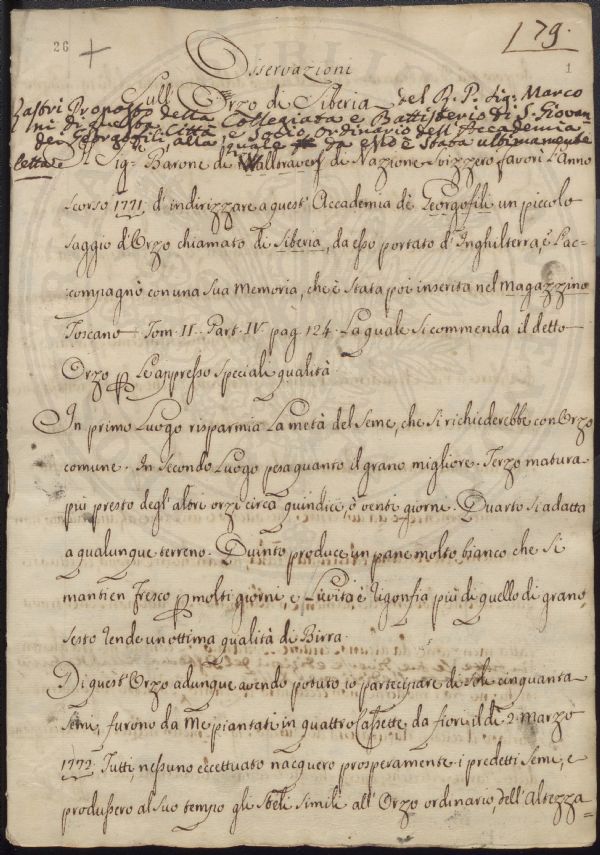 26
179.
1
Osservazioni
Sull'Orzo di Siberia del R. P. Sig.r Marco
Lastri Proposto della Collegiata e Battisterio di S. Giovan
ni di questa Città, e Socio ordinario dell'Accademia
dei Georgofili alla quale da esso è stata ultimamente
letta
Il Sig.e Barone di Walleraven di Nazione Svizzero favorì l'Anno
scorso 1771 d'indirizzare a quest'Accademia dè Georgofili un piccolo
saggio d'Orzo chiamato di Siberia, da esso portato d'Inghilterra, e l'ac=
compagnò con una sua Memoria, che è stata poi inserita nel Magazzino
Toscano Tom. II. Part. IV. pag. 124. La quale si commenda il detto
Orzo p le appresso speciali qualità.
In primo Luogo risparmia la metà del seme, che si richiederebbe con Orzo
comune. In Secondo Luogo pesa quanto il grano migliore. Terzo matura
più presto degl'altri orzi circa quindici, ò venti giorni. Quarto si adatta
a qualunque terreno. Quinto produce un pane molto bianco che si
mantien fresco p molti giorni, e lievita, è rigonfia più di quello di grano,
sesto rende un ottima qualità di Birra.
Di quest'Orzo adunque avendo potuto io partecipare di soli cinquanta
semi, furono da me piantati in quattro Cassette da fiori il dì 2. Marzo
1772. Tutti, nessuno eccettuato nacquero prosperamente i predetti semi, e
produssero al suo tempo gli steli simili all'Orzo ordinario, dell'Altezza=